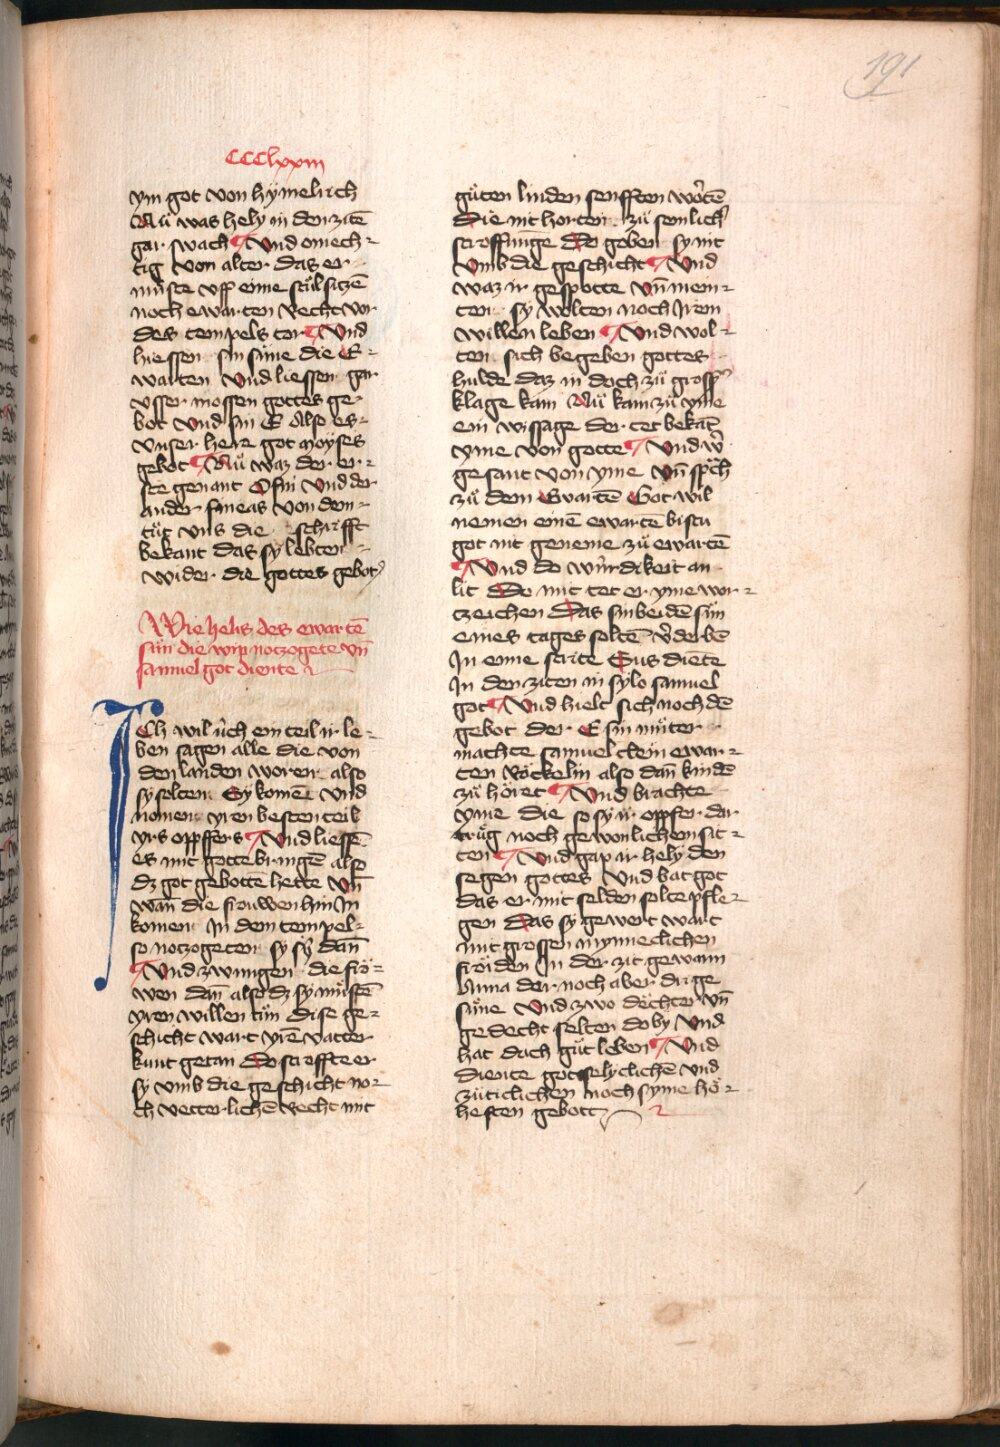 191
CCClxxiii
ym got von hymelrich
Nů was hely in den zitē
gar swach ¶ Vnd omech-
tig von alter das er
můste vff eime stůl sitzē
noch ewarten recht vor
des tempels tor ¶ Vnd
hiessen sin süne die E-
warten Vnd liessen gar
vsser mossen gottes ge-
bot vnd sin E Also es-
vnser herr got moyses
gebot ¶ Nů waz der er-
ste genant Ofni Vnd der
ander fineas von dem-
tůt vns die schrifft
bekant das sy lebten
wider die gottes gebot
Wie helis des ewartē
sün die wip notzogete vn̄
samuel got diente
Ich wil üch ein teil ir le-
ben sagen alle die von
den landen woren also
sy solten Sy komen Vnd
nomen yren besten teil
yrs opffers ¶ Vnd liessē
es mit gotte bringē also
dz got gebottē hette Vn̄
wan̄ die frouwen hin In
komen In dem tempel-
so notzogeten sy sÿ dan̄
¶ Vnd zwungen die frō-
wen dan̄ also dz sy müstē
yren willen tůn dise ge-
schicht wart yrē vatter
kunt getan Do stroffte er
sy vmb die geschicht no-
ch vetterlichē recht mit
gůten linden senfften wortē
Die nit horten zů semlich
stroffunge Do goben sy nit
Vmb die geschicht ¶ Vnd
waz ir gespötte Vn̄ mein-
ten sy wolten noch Irem
willen leben ¶ Vnd wol-
ten sich begeben gottes
hulde daz in doch zů gross
klage kam Nů kam zů yme
ein wissage der tet bekāt
yme von gotte ¶ Vnd w
gesant von yme Vn̄ sprch
zů dem Ewartē Got wil
nemen einē ewartē bistu
got nit geneme zů ewartē
¶ Vnd do würdikeit an
lit Do mit tet er yme wor-
tzeichen Das sin beidē sün
eines tages soltē v̄derbē
In eime strite Sus diēte
In den ziten in sylo samuel
got ¶ Vnd hielt sich noch dē
gebot der E sin můter
machte samuel clein ewar-
ten Röckelin also dan̄ kindē
zů höret ¶ Vnd brachte
yme die so sy ir opffer dar
trůg noch gewonlichem sit-
ten ¶ Vnd gap ir hely den
segen gottes Vnd bat got
das er mit selden solte pfle-
gen Das sy gewert wart
mit grossen mynneclichen
fröiden In der zit gewann
Anna dernoch aber drige
süne Vnd zwo döchter Vn̄
gedecht selten doby Vnd
hat doch gůt leben ¶ Vnd
diente got selyclichē Vnd
züticlichen noch syme hö-
hesten gebott